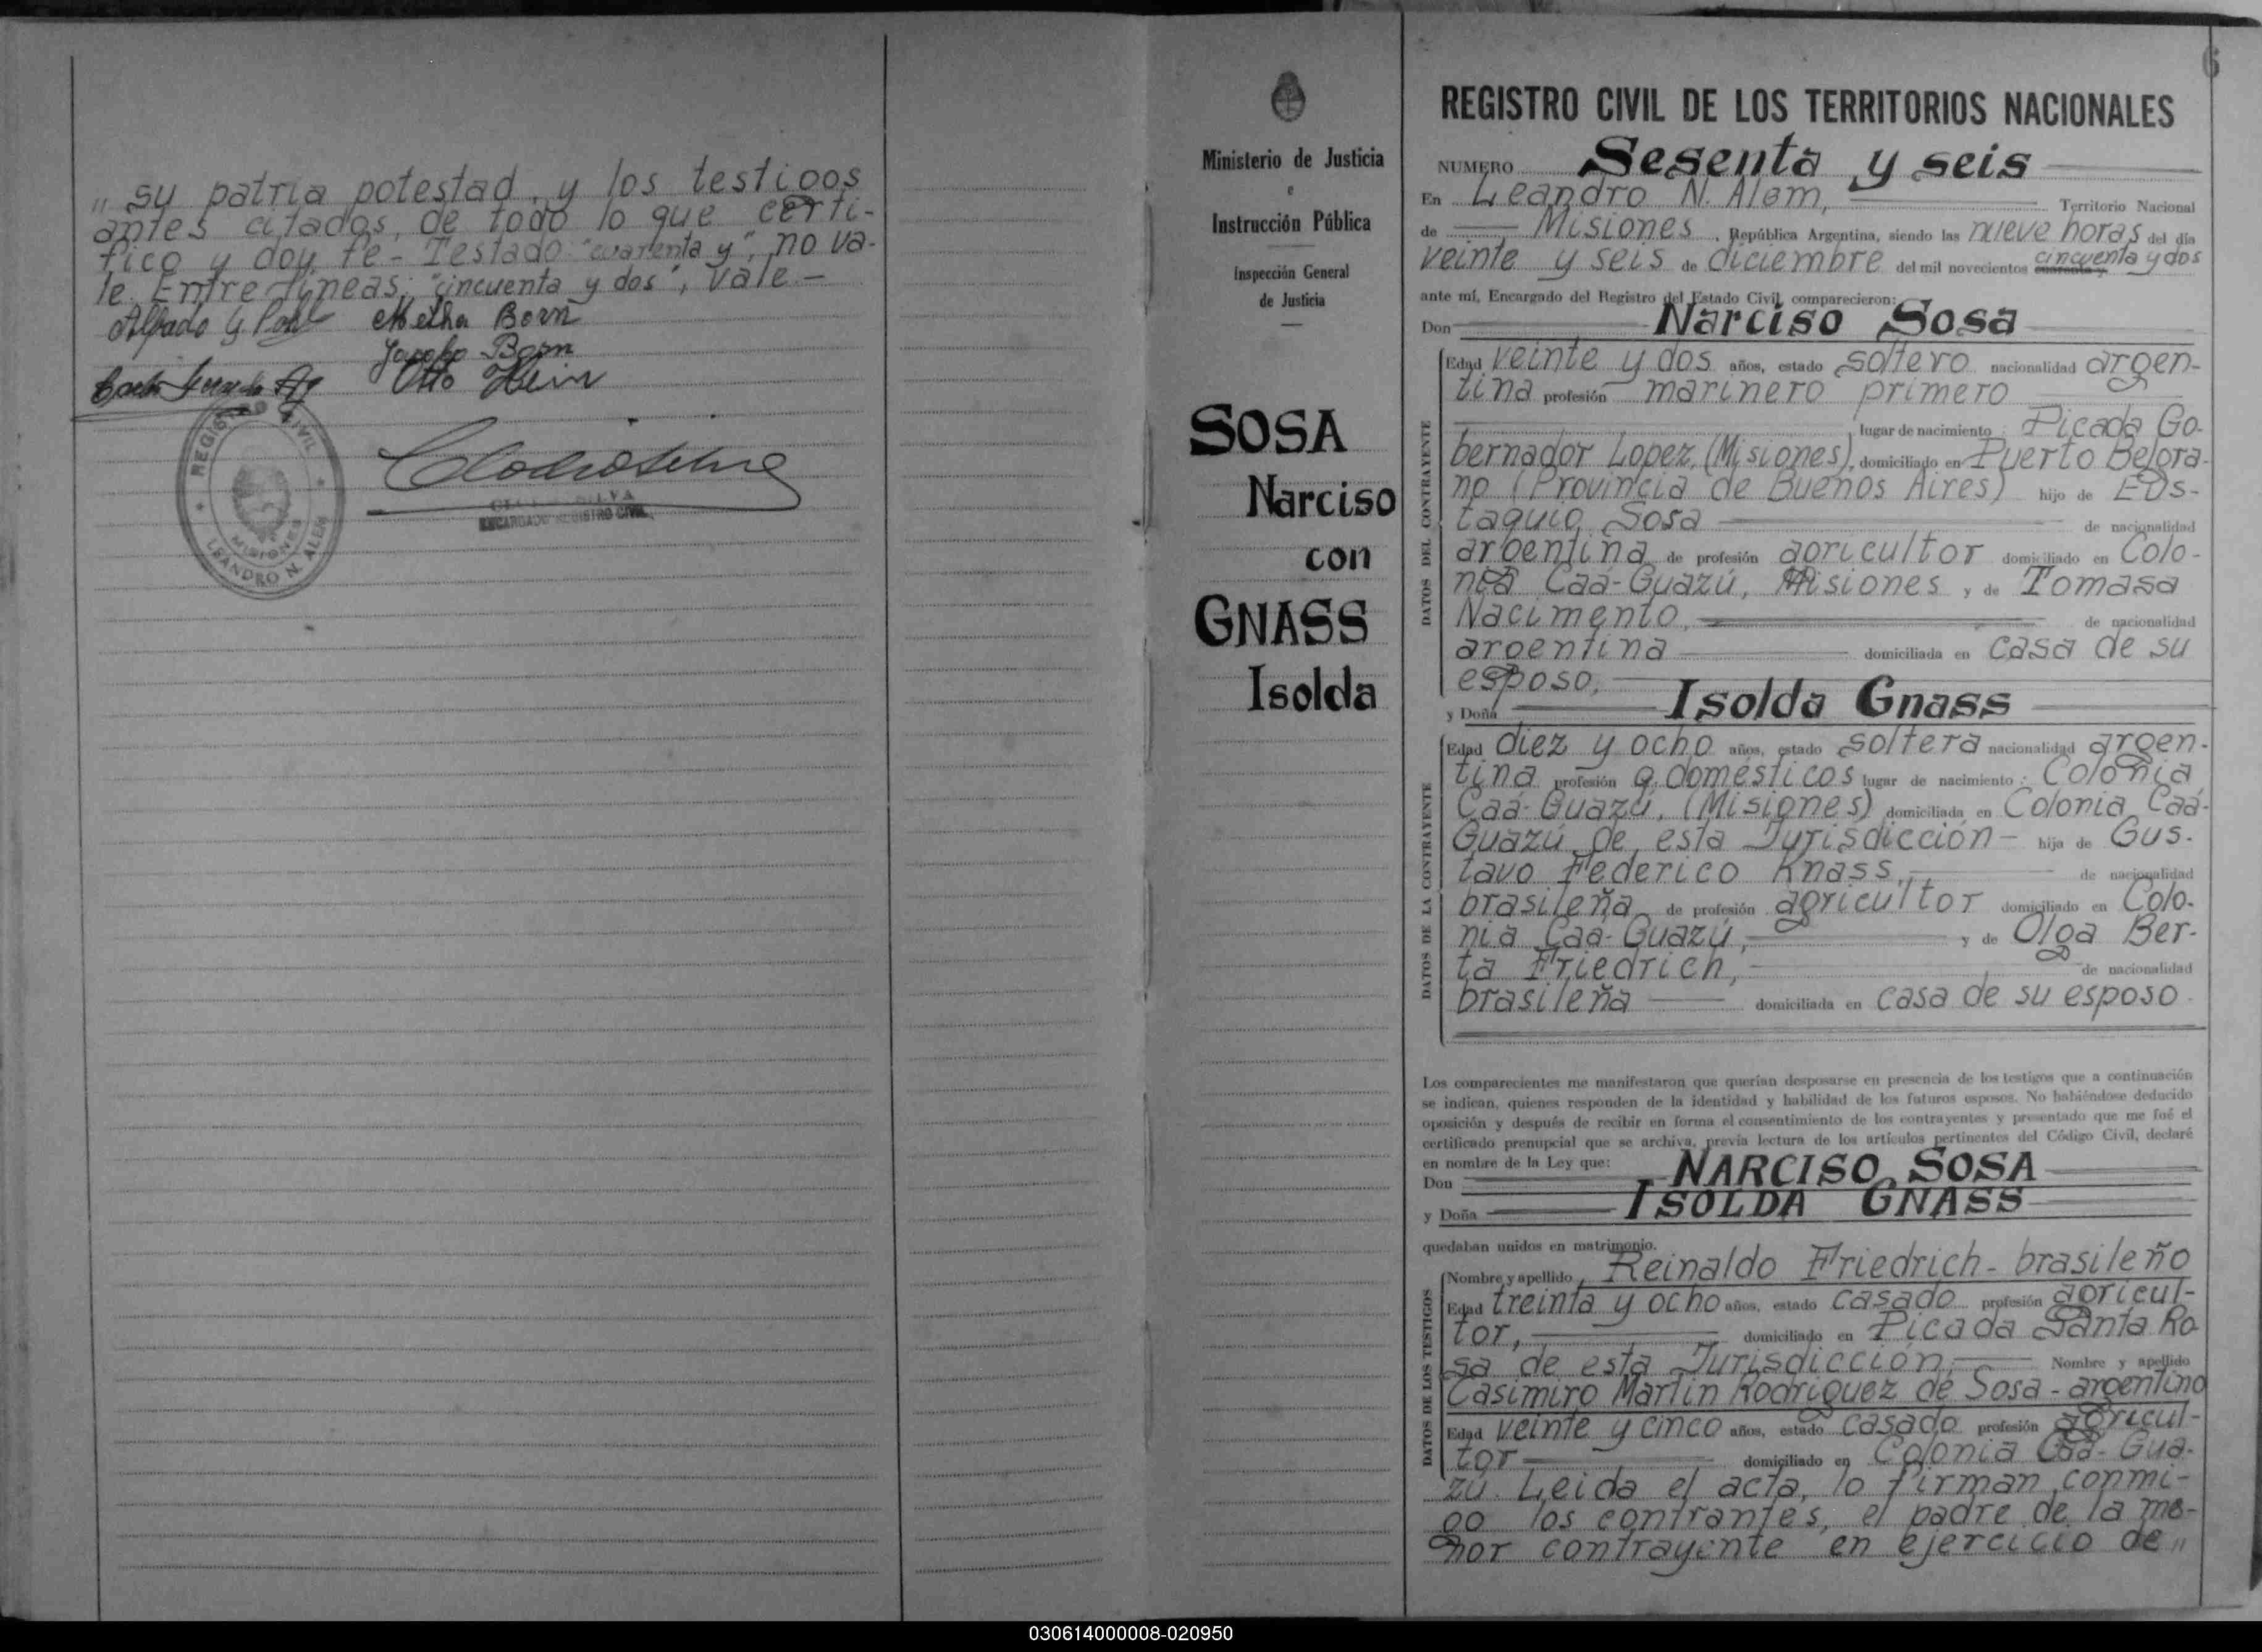 „ su patria potestad, y los testigos
antes citados, de todo lo que certi-
fico y doy fe - Testado: "cuarenta y", no va-
le. Entre líneas: "cincuenta y dos", vale.-
Metha Born
Jacobo Born
Otto Hein
REGISTRO CIVIL
MISIONES
LEANDRO N. ALEM
SILVA
ENCARGADO REGISTRO CIVIL
Ministerio de Justicia
e
Instrucción Pública
Inspección General
de Justicia
SOSA
Narciso
con
GNASS
Isolda
6
REGISTRO CIVIL DE LOS TERRITORIOS NACIONALES
NUMERO Sesenta y seis
En Leandro N. Alem, Territorio Nacional
de Misiones, República Argentina, siendo las nueve horas del día
cincuenta y dos
veinte y seis de diciembre del mil novecientos cuarenta y
ante mí, Encargado del Registro del Estado Civil, comparecieron:
Don Narciso Sosa
Edad veinte y dos años, estado soltero nacionalidad argen-
tina profesión marinero primero
lugar de nacimiento: Picada Go-
bernador Lopez, (Misiones), domiciliado en Puerto Belgra-
no (Provincia de Buenos Aires) hijo de Eus-
taquio Sosa de nacionalidad
argentina de profesión agricultor domiciliado en Colo-
nia Caá-Guazú, Misiones y de Tomasa
Nacimento, de nacionalidad
argentina domiciliada en casa de su
esposo,
y Doña Isolda Gnass
Edad diez y ocho años, estado soltera nacionalidad argen-
tina profesión q. domésticos lugar de nacimiento: Colonia
Caá-Guazú, (Misiones) domiciliada en Colonia Caá-
Guazú de esta Jurisdicción - hija de Gus-
tavo Federico Knass, de nacionalidad
brasileña de profesión agricultor domiciliado en Colo-
nia Caá-Guazú, y de Olga Ber-
ta Friedrich, de nacionalidad
brasileña domiciliada en casa de su esposo
Los comparecientes me manifestaron que querían desposarse en presencia de los testigos que a continuación
se indican, quienes responden de la identidad y habilidad de los futuros esposos. No habiéndose deducido
oposición y después de recibir en forma el consentimiento de los contrayentes y presentado que me fué el
certificado prenupcial que se archiva, previa lectura de los artículos pertinentes del Código Civil, declaré
en nombre de la Ley que:
Don NARCISO SOSA
y Doña ISOLDA GNASS
quedaban unidos en matrimonio.
Nombre y apellido Reinaldo Friedrich - brasileño
Edad treinta y ocho años, estado casado profesión agricul-
tor, domiciliado en Picada Santa Ro
sa de esta Jurisdicción, Nombre y apellido
Casimiro Martin Rodriguez de Sosa - argentino
Edad veinte y cinco años, estado casado profesión agricul-
tor domiciliado en Colonia Caá-Gua-
zú. Leida el acta, lo firman conmi-
go los contrantes, el padre de la me-
nor contrayente en ejercicio de „
DATOS DEL CONTRAYENTE
DATOS DE LA CONTRAYENTE
DATOS DE LOS TESTIGOS
030614000008-020950